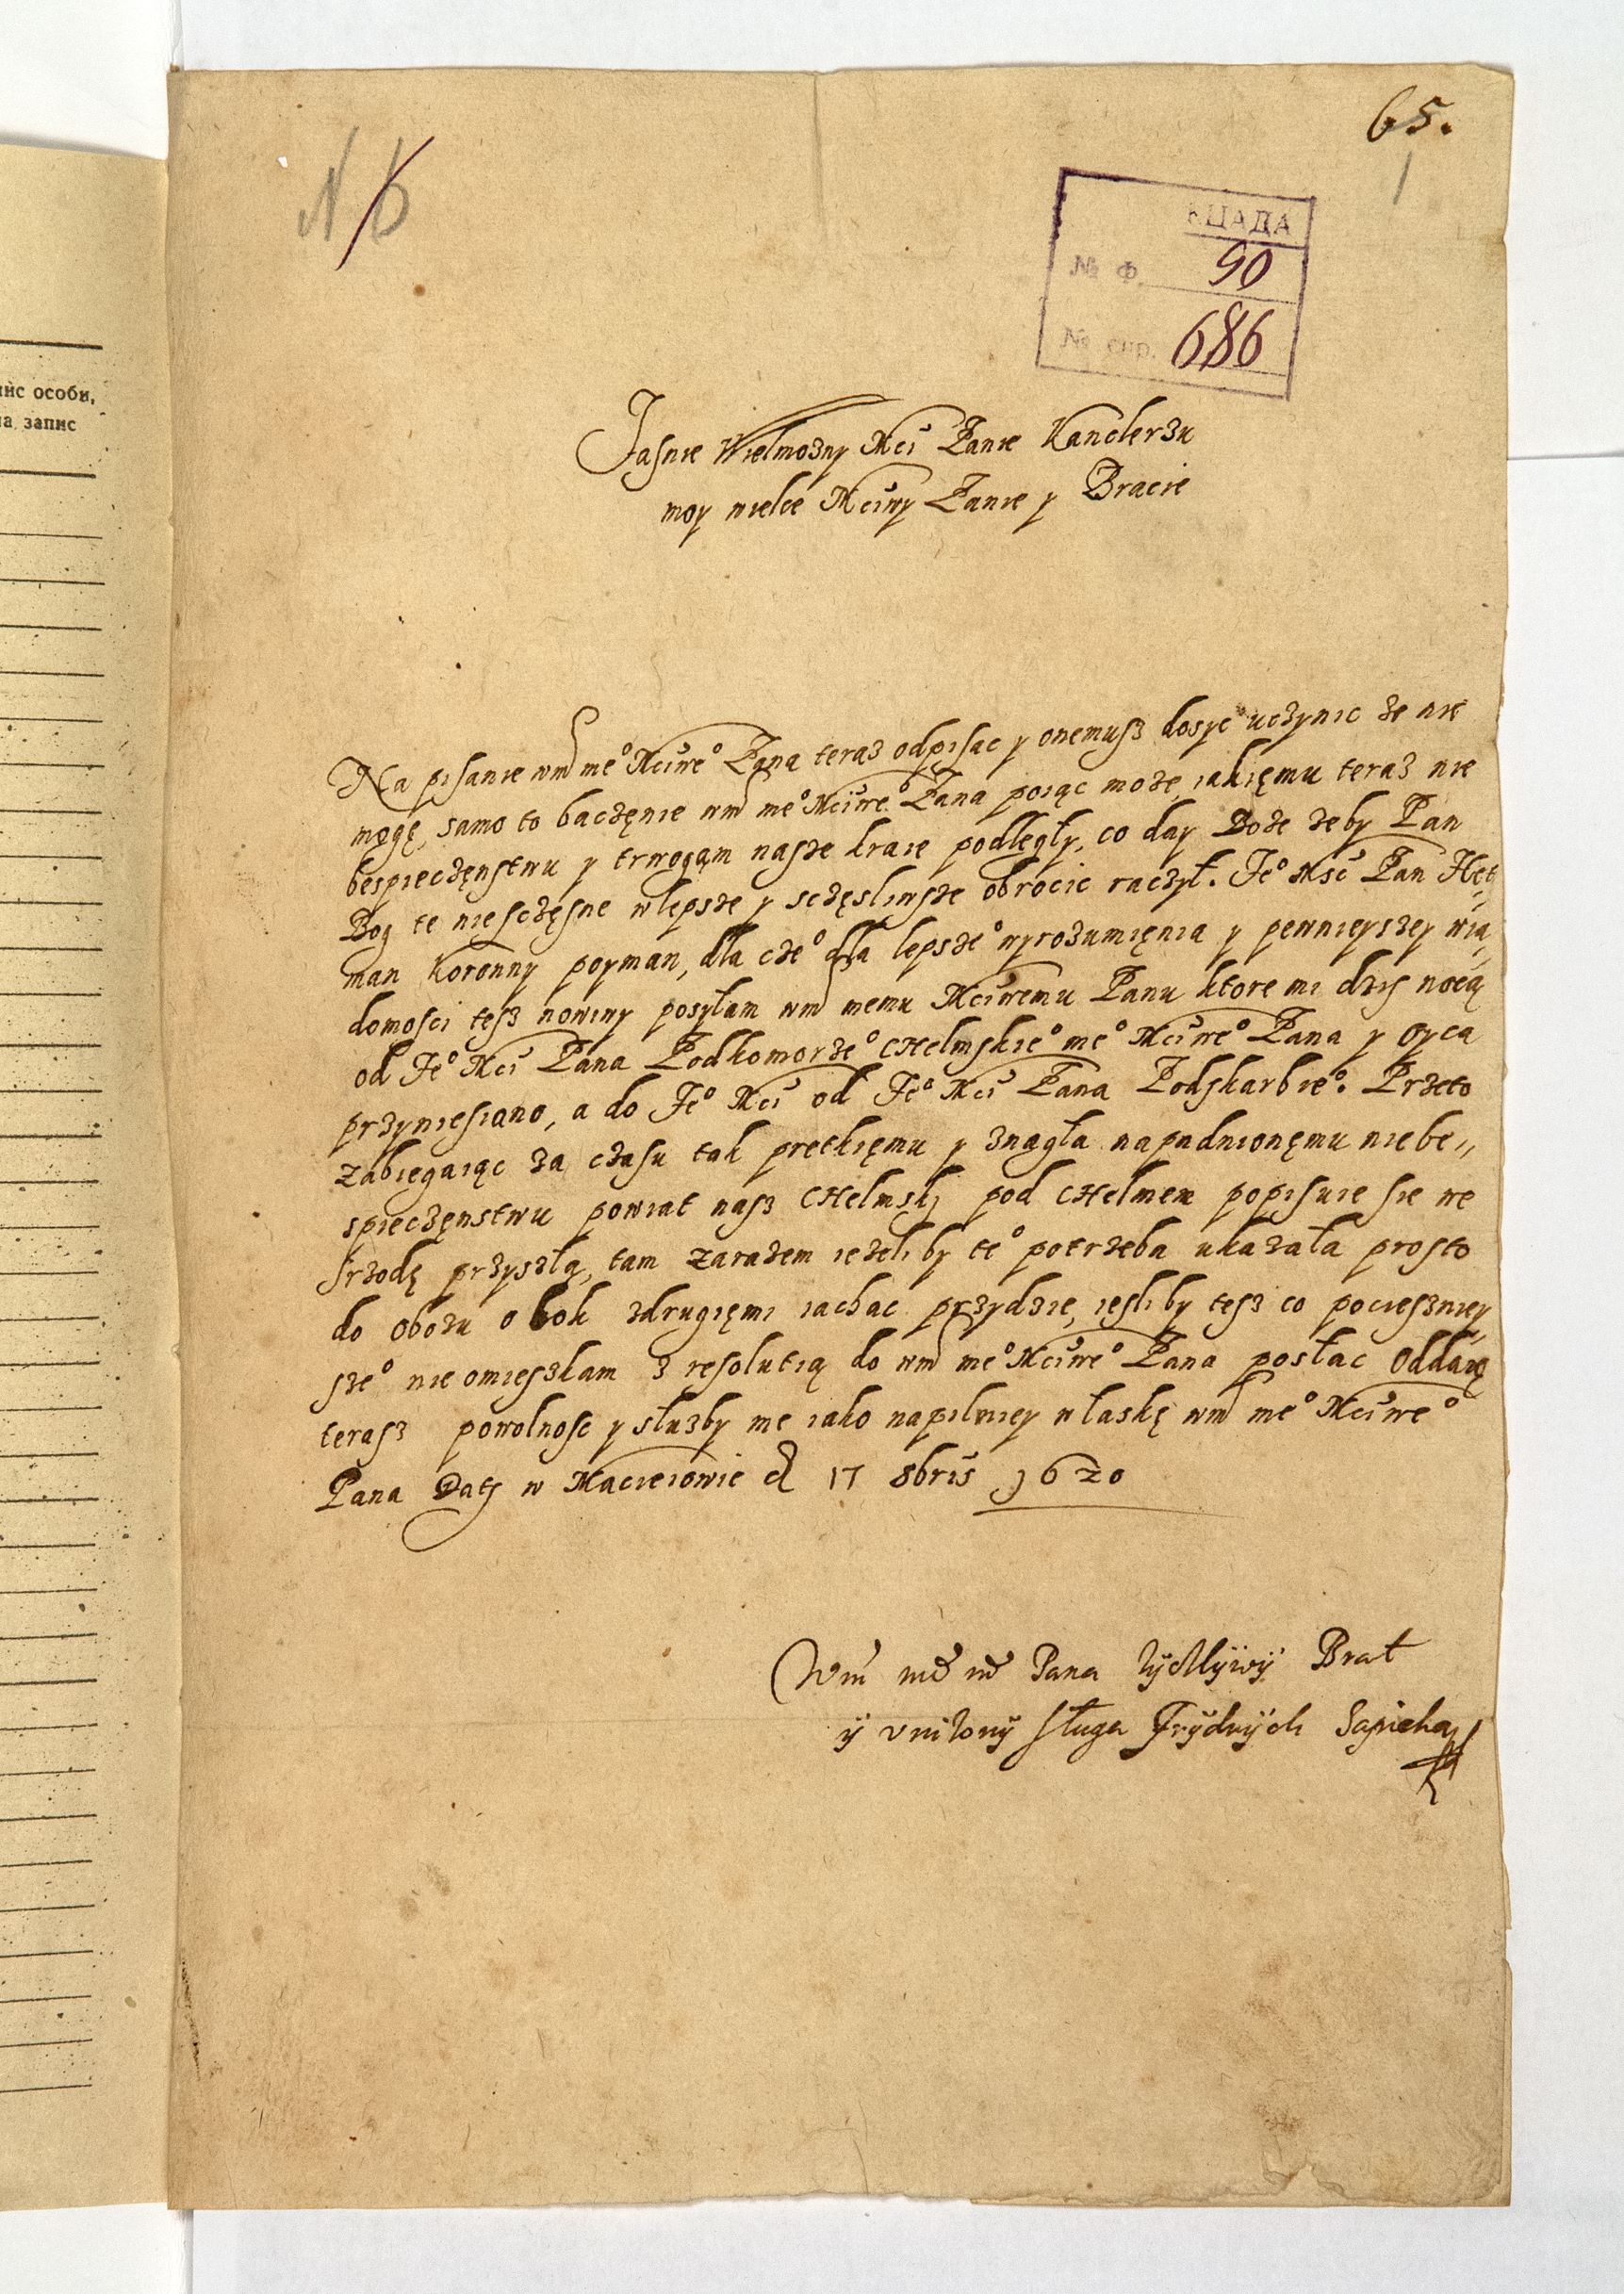 65.
1
N 6
КЦАДА
№ Ф. 90
№ спр. 686
ис особи,
на запис
Jasnie Wielmozny Mci Panie Kanclerzu
moy wielce Mciwy Panie y Bracie
Na pisanie wm me° Mciwe° Pana teraz odpisac y onemusz dosyc uczynic że nie
mogę, samo to baczęnie wm me° Mciwe° Pana poiąc może, iakięmu teraz nie
bespieczęnstwu y trwogąm nasze kraie podległy, co day Boże żeby Pan
Bog te niesczęsne w lepsze y sczęsliwsze obrocic raczył. Je° Msc Pan Het,
man Koronny poyman, dla cze° dla lepsze° wyrozumięnia y pewnieyszey wia,
domosci tesz nowiny posyłam wm memu Mciwemu Panu ktore mi dzis nocą
od Je° Mci Pana Podkomorze° CHelmskie° me° Mciwe° Pana y Oyca
przyniesiano, a do Je° Mci od Je° Mci Pana Podskarbie°. Przeto
zabiegaiąc za czasu tak prętkięmu y znagła napadnionęmu niebe„
spieczęnstwu powiat nasz CHelmskj pod CHelmem popisuie sie we
srzodę przyszłą, tam zarazem ieżeliby te° potrzeba ukazała prosto
do obozu obok zdrugięmi iachac przydzie, iesliby tesz co pocieszniey,
sze° nie omieszkam z resolutią do wm me° Mciwe° Pana posłac Oddaię
terasz powolnosc y służby me iako napilniey w łaskę wm me° Mciwe°
Pana Datj w Macieiowie d 17 8bris 1620
Wm me° m° Pana życzlÿwÿ Brat
ÿ vniżonÿ sługa Frÿdrÿch Sapieha